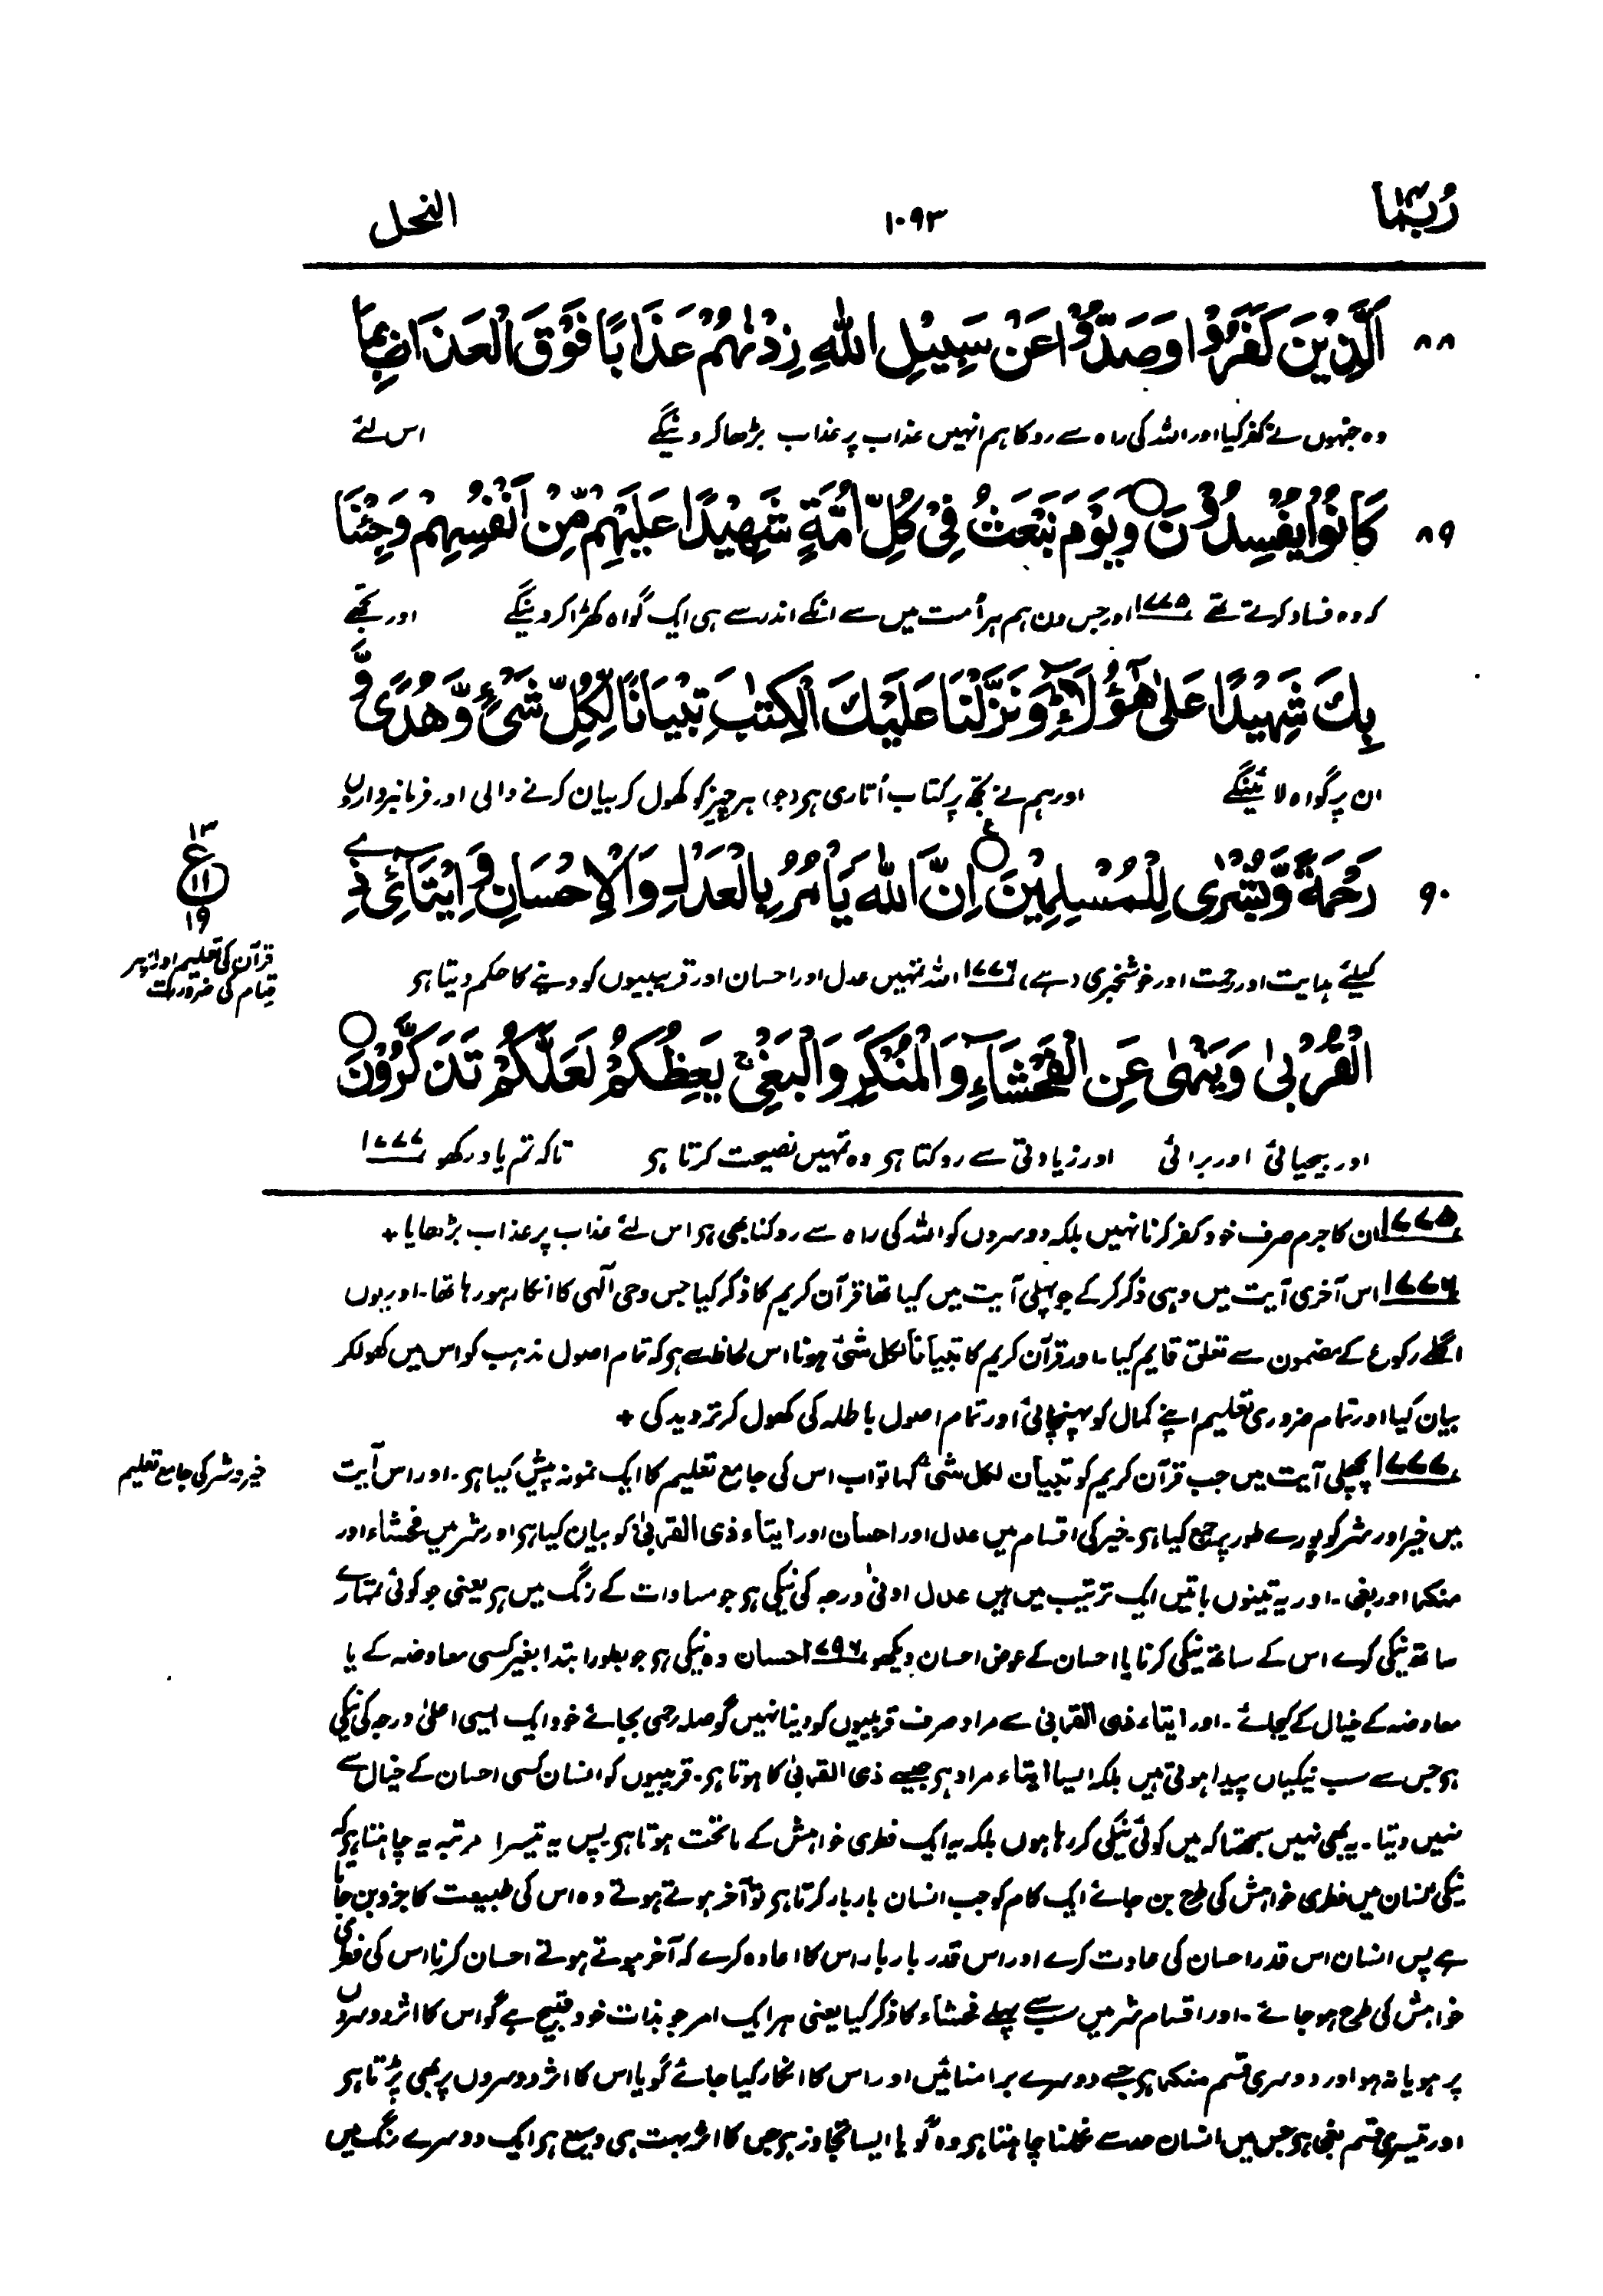 رُبَمَا ۱۴
۱۰۹۳
النحل
۸۸ اَلَّذِيْنَ كَفَرُوْا وَصَدُّوْا عَنْ سَبِيْلِ اللّٰهِ زِدْنٰهُمْ عَذَابًا فَوْقَ الْعَذَابِ بِمَا
وہ جنہوں نے کفر کیا اور اللہ کی راہ سے روکا ہم انہیں عذاب پر عذاب بڑھا کر دینگے اس لئے
۸۹ كَانُوْا يُفْسِدُوْنَ ○ وَيَوْمَ نَبْعَثُ فِيْ كُلِّ اُمَّةٍ شَهِيْدًا عَلَيْهِمْ مِّنْ اَنْفُسِهِمْ وَجِئْنَا
کہ وہ فساد کرتے تھے ۱۷۷۵ اور جس دن ہم ہر اُمت میں سے انکے اندر سے ہی ایک گواہ کھڑا کر دینگے اور تجھے
بِكَ شَهِيْدًا عَلٰى هٰٓؤُلَآءِ ؕ وَنَزَّلْنَا عَلَيْكَ الْكِتٰبَ تِبْيَانًا لِّكُلِّ شَيْءٍ وَّهُدًى وَّ
ان پر گواہ لائینگے اور ہم نے تجھ پر کتاب اُتاری ہر (جو) ہر چیز کو کھول کر بیان کرنے والی اور فرمانبرداروں
۹۰ رَحْمَةً وَّبُشْرٰى لِلْمُسْلِمِيْنَ ○ ع اِنَّ اللّٰهَ يَاْمُرُ بِالْعَدْلِ وَالْاِحْسَانِ وَاِيْتَآئِ ذِي
۱۳
ع
۱۱
۱۹
قرآن کی تعلیم اور اسپر
قیام کی ضرورت
کیلئے ہدایت اور رحمت اور خوشخبری (ہے) ۱۷۷۶ اللہ تمہیں عدل اور احسان اور قریبیوں کو دینے کا حکم دیتا ہر
الْقُرْبٰى وَيَنْهٰى عَنِ الْفَحْشَآءِ وَالْمُنْكَرِ وَالْبَغْيِ ۚ يَعِظُكُمْ لَعَلَّكُمْ تَذَكَّرُوْنَ ○
اور بیحیائی اور برائی اور زیادتی سے روکتا ہر وہ تمہیں نصیحت کرتا ہر تاکہ تم یاد رکھو ۱۷۷۷
۱۷۷۵ ان کا جرم صرف خود کفر کرنا نہیں بلکہ دوسروں کو اللہ کی راہ سے روکنا بھی ہر اس لئے عذاب پر عذاب بڑھایا +
۱۷۷۶ اس آخری آیت میں وہی ذکر کر کے جو پہلی آیت میں کیا تھا قرآن کریم کا ذکر کیا جس وحی الٰہی کا انکار ہو رہا تھا۔ اور یوں
اگلے رکوع کے مضمون سے تعلق قایم کیا۔ اور قرآن کریم کا تبیاناً لکل شئ ہونا اس لحاظ سے ہر کہ تمام اصول مذہب کو اس میں کھولکر
بیان کیا اور تمام ضروری تعلیم اپنے کمال کو پہنچائی اور تمام اصول باطلہ کی کھول کر تردید کی +
۱۷۷۷ پچھلی آیت میں جب قرآن کریم کو تبیان لکل شئ کہا تو اب اس کی جامع تعلیم کا ایک نمونہ پیش کیا ہر۔ اور اس آیت
خیر و شر کی جامع تعلیم
میں خیر اور شر کو پورے طور پر جمع کیا ہر۔ خیر کی اقسام میں عدل اور احسان اور ایتاء ذی القربیٰ کو بیان کیا ہر اور شر میں فحشاء اور
منکر اور بغی۔ اور یہ تینوں باتیں ایک ترتیب میں ہیں عدل ادنیٰ درجہ کی نیکی ہر جو مساوات کے رنگ میں ہر یعنی جو کوئی تمہارے
ساتھ نیکی کرے اس کے ساتھ نیکی کرنا یا احسان کے عوض احسان دیکھو ۱۷۹۶ احسان وہ نیکی ہر جو بطور ابتدا بغیر کسی معاوضہ کے یا
معاوضہ کے خیال کے کیجائے۔ اور ایتاء ذی القربیٰ سے مراد صرف قریبیوں کو دینا نہیں گو صلہ رحمی بجائے خود ایک ایسی اعلیٰ درجہ کی نیکی
ہر جس سے سب نیکیاں پیدا ہوتی ہیں بلکہ ایسا ایتاء مراد ہر جیسے ذی القربیٰ کا ہوتا ہر۔ قریبیوں کو انسان کسی احسان کے خیال سے
نہیں دیتا۔ یہ بھی نہیں سمجھتا کہ میں کوئی نیکی کر رہا ہوں بلکہ یہ ایک فطری خواہش کے ماتحت ہوتا ہر پس یہ تیسرا مرتبہ یہ چاہتا ہر کہ
نیکی انسان میں فطری خواہش کی طرح بن جائے ایک کام کو جب انسان بار بار کرتا ہر تو آخر ہوتے ہوتے وہ اس کی طبیعت کا جزو بن جاتا
ہے پس انسان اس قدر احسان کی عادت کرے اور اس قدر بار بار اس کا اعادہ کرے کہ آخر ہوتے ہوتے احسان کرنا اس کی فطری
خواہش کی طرح ہو جائے۔ اور اقسام شر میں سب سے پہلے فحشاء کا ذکر کیا یعنی ہر ایک امر جو بذات خود قبیح ہے گو اس کا اثر دوسروں
پر ہو یا نہ ہو اور دوسری قسم منکر ہر جسے دوسرے برا منائیں اور اس کا انکار کیا جائے گویا اس کا اثر دوسروں پر بھی پڑتا ہر
اور تیسری قسم بغی ہر جس میں انسان حد سے نکلنا چاہتا ہر وہ گویا ایسا تجاوز ہر جس کا اثر بہت ہی وسیع ہر ایک دوسرے رنگ میں